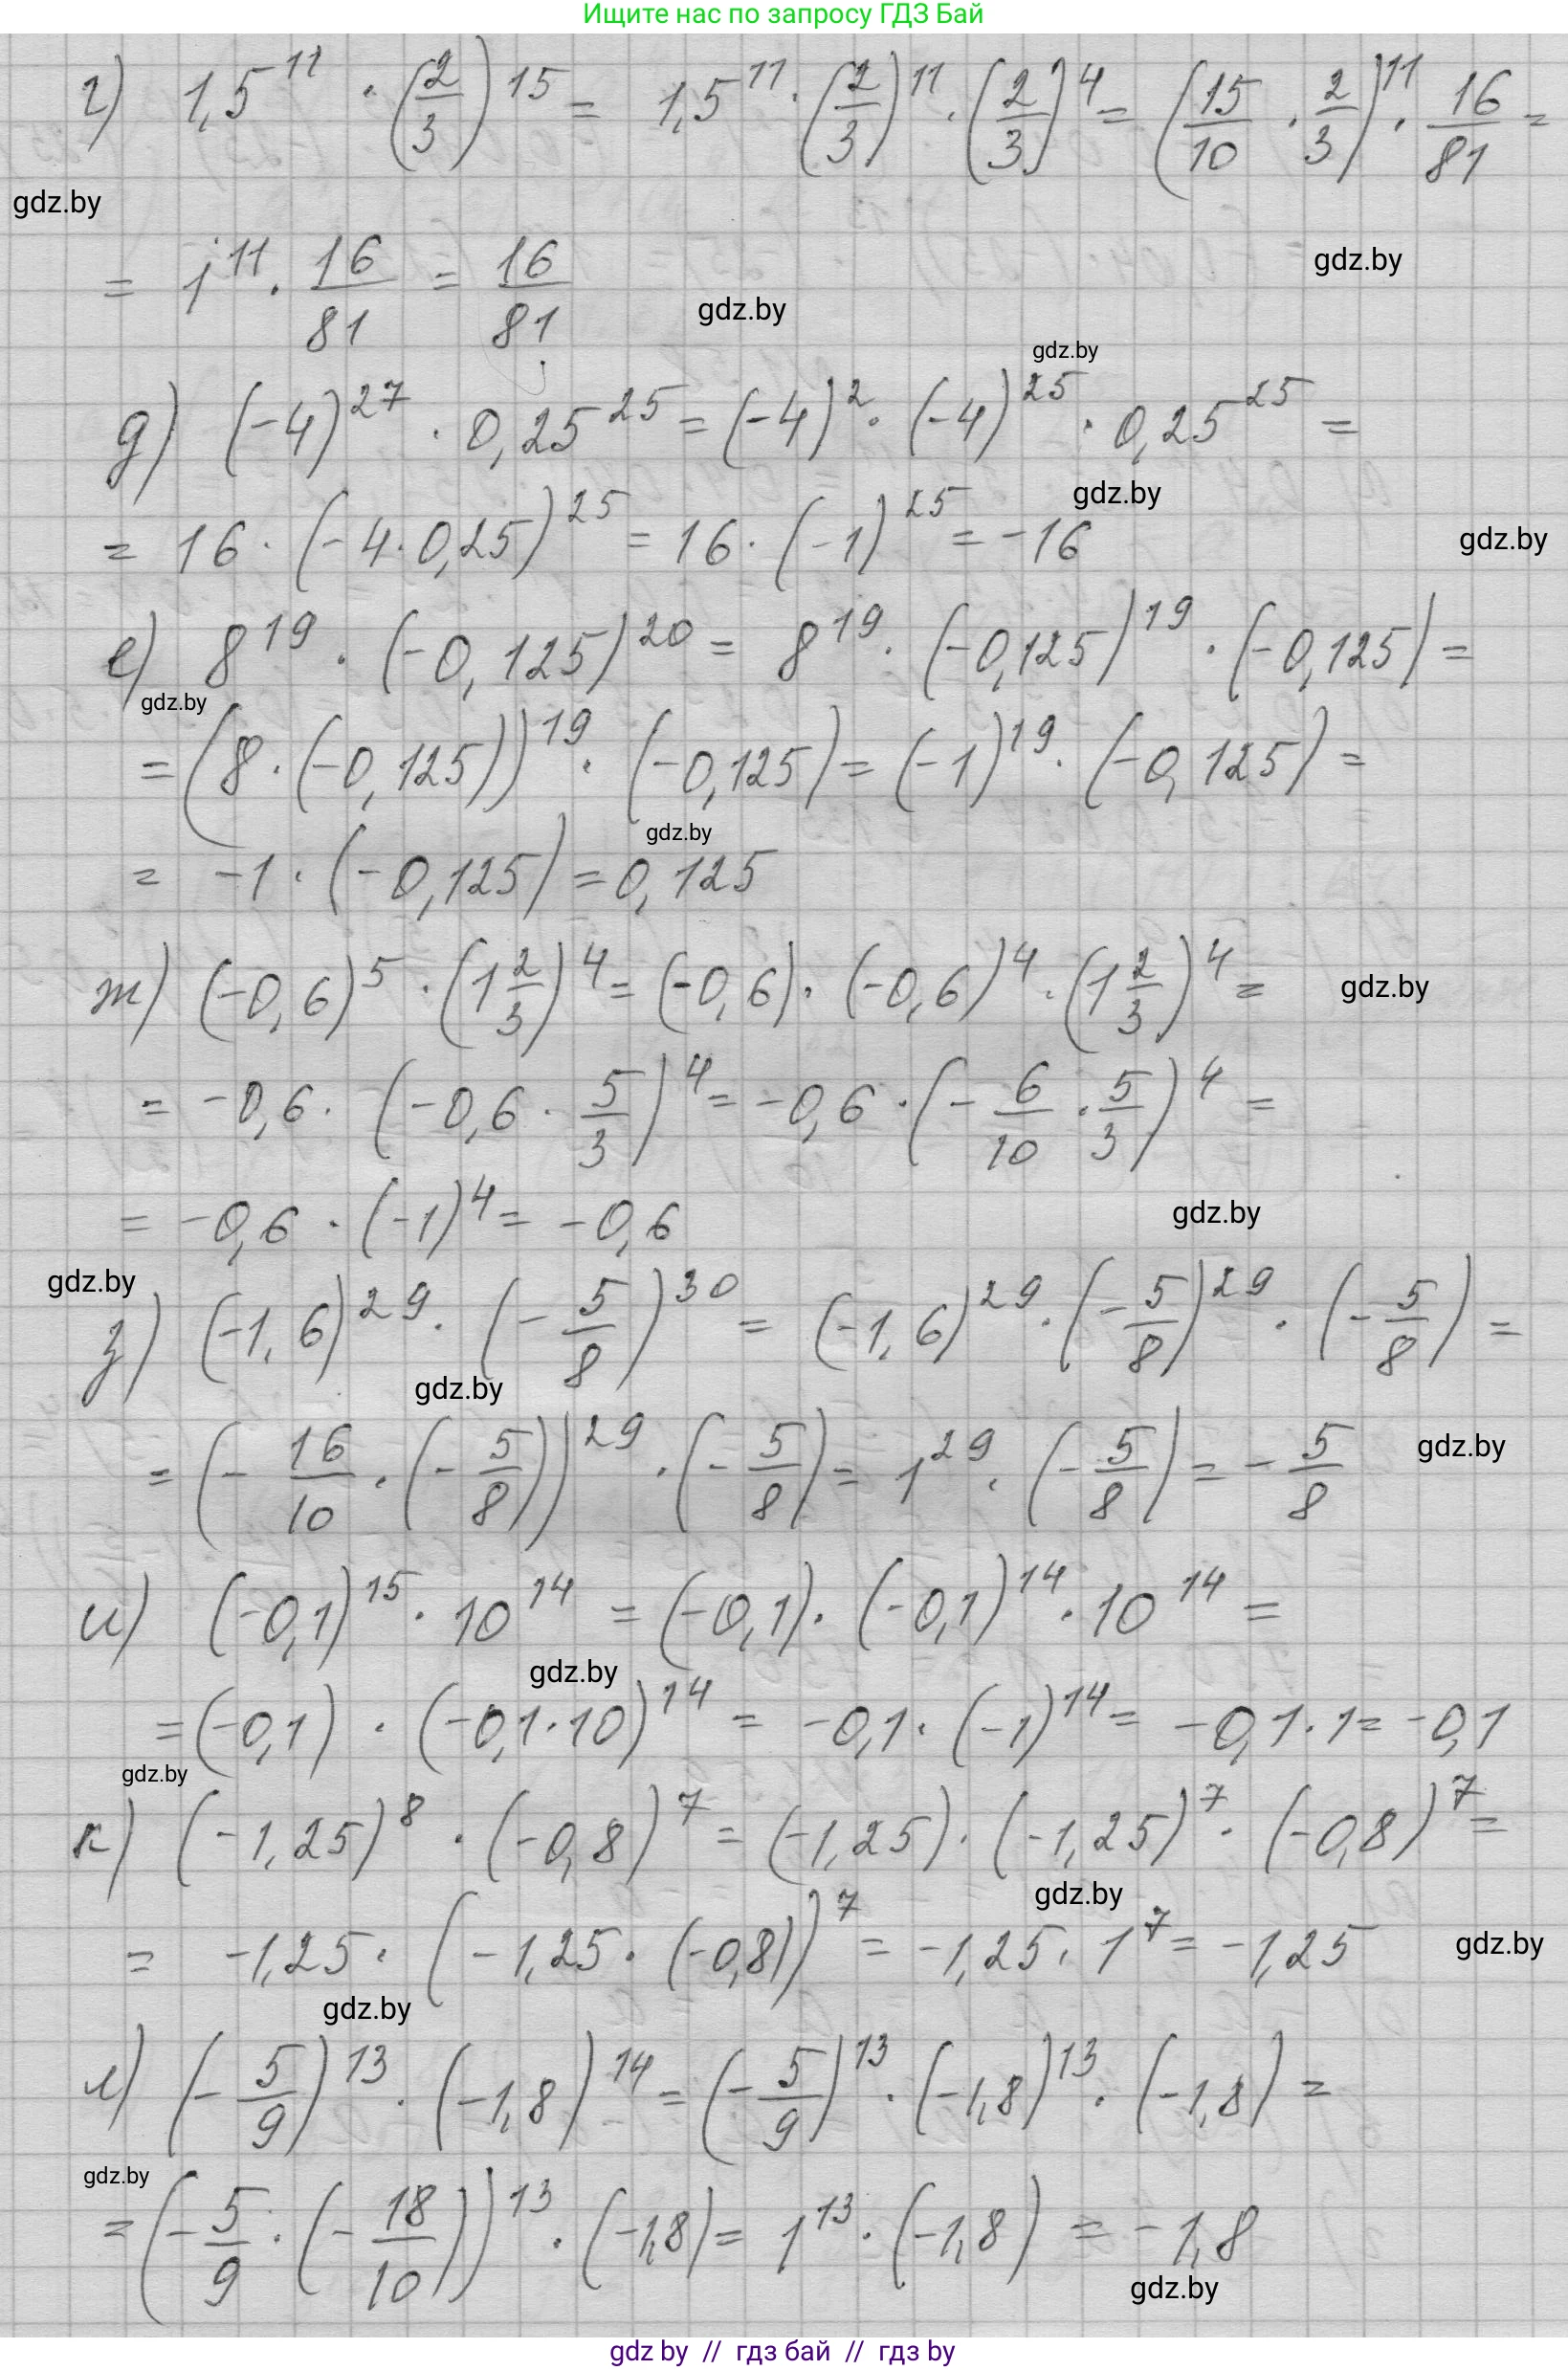 Ищите нас по запросу ГДЗ Бай
г) 1,5^11 · (2/3)^15 = 1,5^11 · (2/3)^11 · (2/3)^4 = (15/10 · 2/3)^11 · 16/81 =
gdz.by
= 1^11 · 16/81 = 16/81
gdz.by
gdz.by
gdz.by
д) (-4)^27 · 0,25^25 = (-4)^2 · (-4)^25 · 0,25^25 =
gdz.by
= 16 · (-4 · 0,25)^25 = 16 · (-1)^25 = -16
gdz.by
е) 8^19 · (-0,125)^20 = 8^19 · (-0,125)^19 · (-0,125) =
gdz.by
= (8 · (-0,125))^19 · (-0,125) = (-1)^19 · (-0,125) =
gdz.by
= -1 · (-0,125) = 0,125
ж) (-0,6)^5 · (1 2/3)^4 = (-0,6) · (-0,6)^4 · (1 2/3)^4 =
gdz.by
= -0,6 · (-0,6 · 5/3)^4 = -0,6 · (-6/10 · 5/3)^4 =
= -0,6 · (-1)^4 = -0,6
gdz.by
gdz.by
з) (-1,6)^29 · (-5/8)^30 = (-1,6)^29 · (-5/8)^29 · (-5/8) =
gdz.by
= (-16/10 · (-5/8))^29 · (-5/8) = 1^29 · (-5/8) = -5/8
gdz.by
и) (-0,1)^15 · 10^14 = (-0,1) · (-0,1)^14 · 10^14 =
gdz.by
= (-0,1) · (-0,1 · 10)^14 = -0,1 · (-1)^14 = -0,1 · 1 = -0,1
gdz.by
к) (-1,25)^8 · (-0,8)^7 = (-1,25) · (-1,25)^7 · (-0,8)^7 =
gdz.by
= -1,25 · (-1,25 · (-0,8))^7 = -1,25 · 1^7 = -1,25
gdz.by
gdz.by
л) (-5/9)^13 · (-1,8)^14 = (-5/9)^13 · (-1,8)^13 · (-1,8) =
gdz.by
= (-5/9 · (-18/10))^13 · (-1,8) = 1^13 · (-1,8) = -1,8
gdz.by
gdz by // гдз бай // гдз by